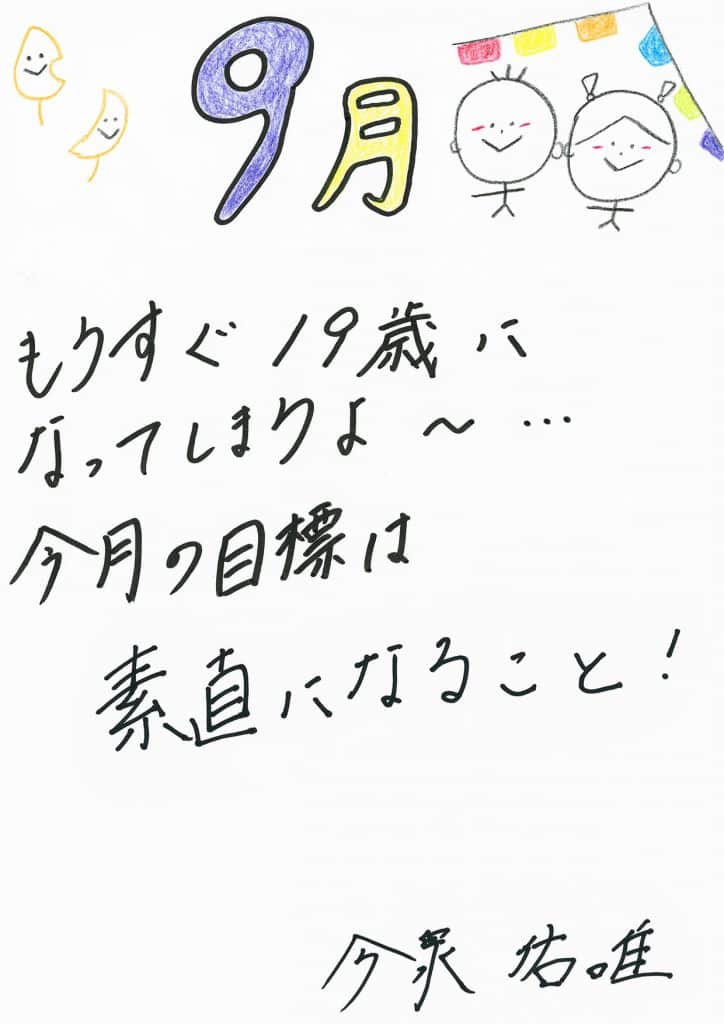 9月
もうすぐ19歳に
なってしまうよ〜…
今月の目標は
素直になること!
今泉 佑唯